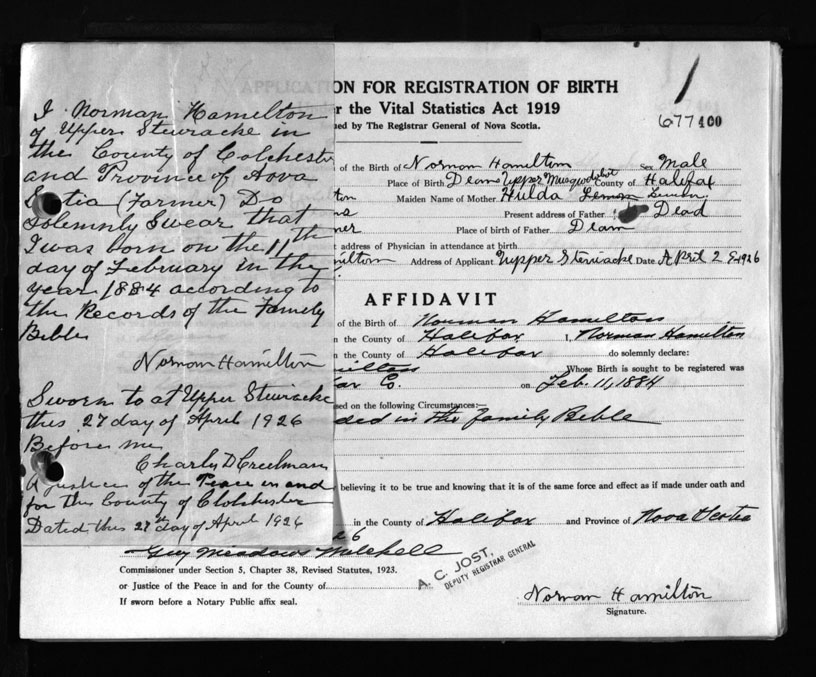 I Norman Hamilton
of Upper Stewiacke in
the County of Colchester
and Province of Nova
Scotia (Farmer) Do
Solemnly Swear that
I was born on the 11th
day of February in the
year 1884 according to
the Records of the Family
Bible
Norman Hamilton
Sworn to at Upper Stewiacke
this 27 day of April 1926
Before me
Charles D Creelman
A justice of the Peace in and
for the County of Clolchester
Dated this 27th day of April 1926
APPLICATION FOR REGISTRATION OF BIRTH
r the Vital Statistics Act 1919
sed by The Registrar General of Nova Scotia.
1
677400
of the Birth of Norman Hamilton Sex Male
Place of Birth Dean Upper Musquodoboit County of Halifax
ton Maiden Name of Mother Hulda
Present address of Father Dead
ner Place of birth of Father Dean
t address of Physician in attendance at birth
milton Address of Applicant Upper Stewiacke Date April 28 1926
AFFIDAVIT
of the Birth of Norman Hamilton
n the County of Halifax I, Norman Hamilton
n the County of Halifax do solemnly declare:
milton Whose Birth is sought to be registered was
ax Co. on Feb. 11, 1884
sed on the following Circumstances:—
ded in the Family Bible
believing it to be true and knowing that it is of the same force and effect as if made under oath and
in the County of Halifax and Province of Nova Scotia
26
Guy Meadows Mitchell
Commissioner under Section 5, Chapter 38, Revised Statutes, 1923.
or Justice of the Peace in and for the County of
If sworn before a Notary Public affix seal.
A. C. JOST,
DEPUTY REGISTRAR GENERAL
Norman Hamilton
Signature.